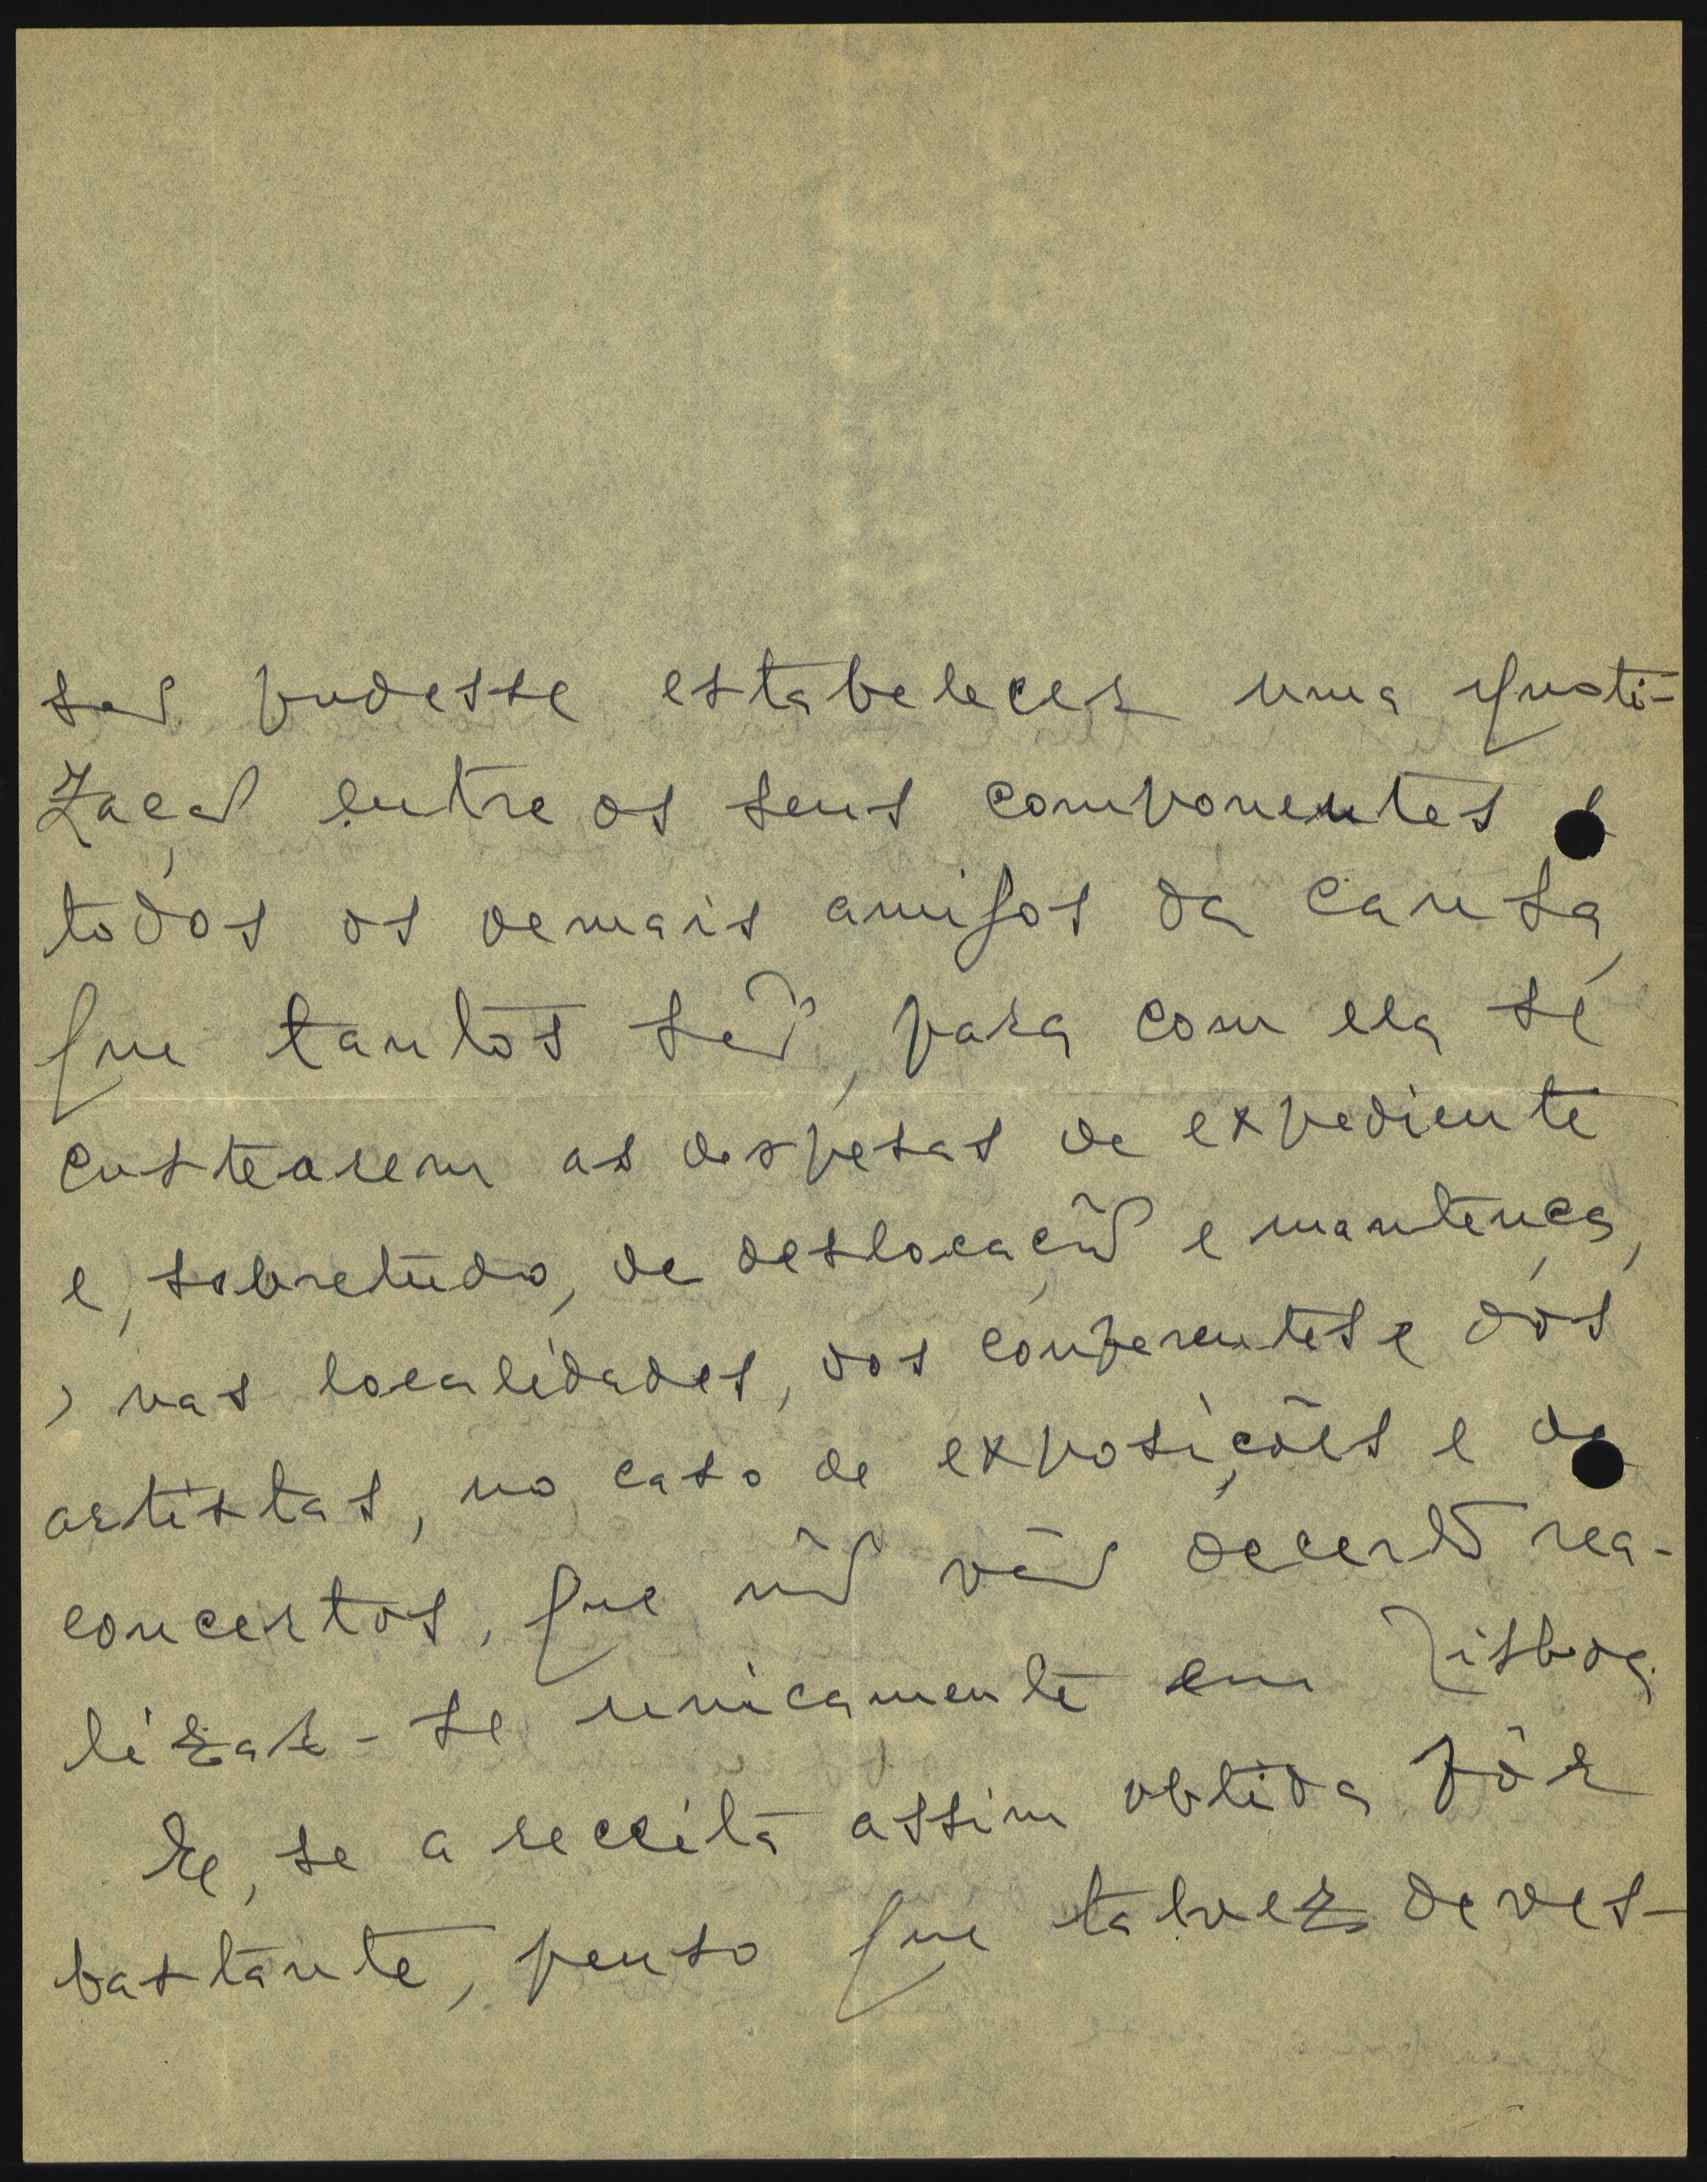 são pudesse estabelecer uma quoti-
zação entre os seus componentes e
todos os demais amigos da causa,
que tantos são, para com ela se
custearem as despesas de expediente
e, sobretudo, de deslocação e mantença,
, nas localidades, dos conferentes e dos
artistas, no caso de exposições e de
concertos, que não vão decerto rea-
lizar-se unicamente em Lisboa.
E, se a receita assim obtida fôr
bastante, penso que talvez deves-